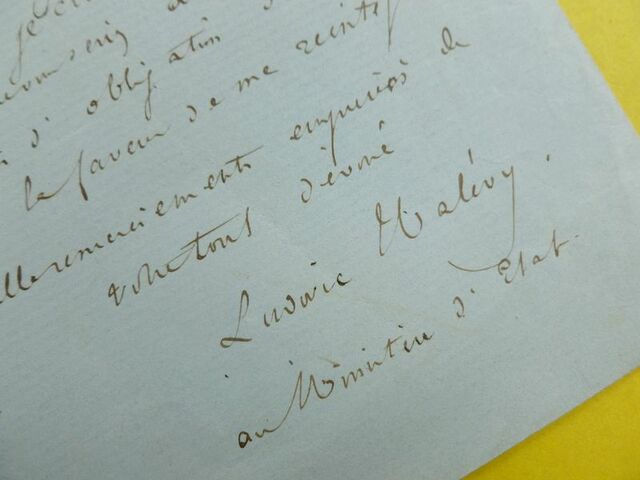 je
d'obligation
la faveur de me
remerciements empressés de
votre tout dévoué
Ludovic Halévy.
au Ministère d'Etat.